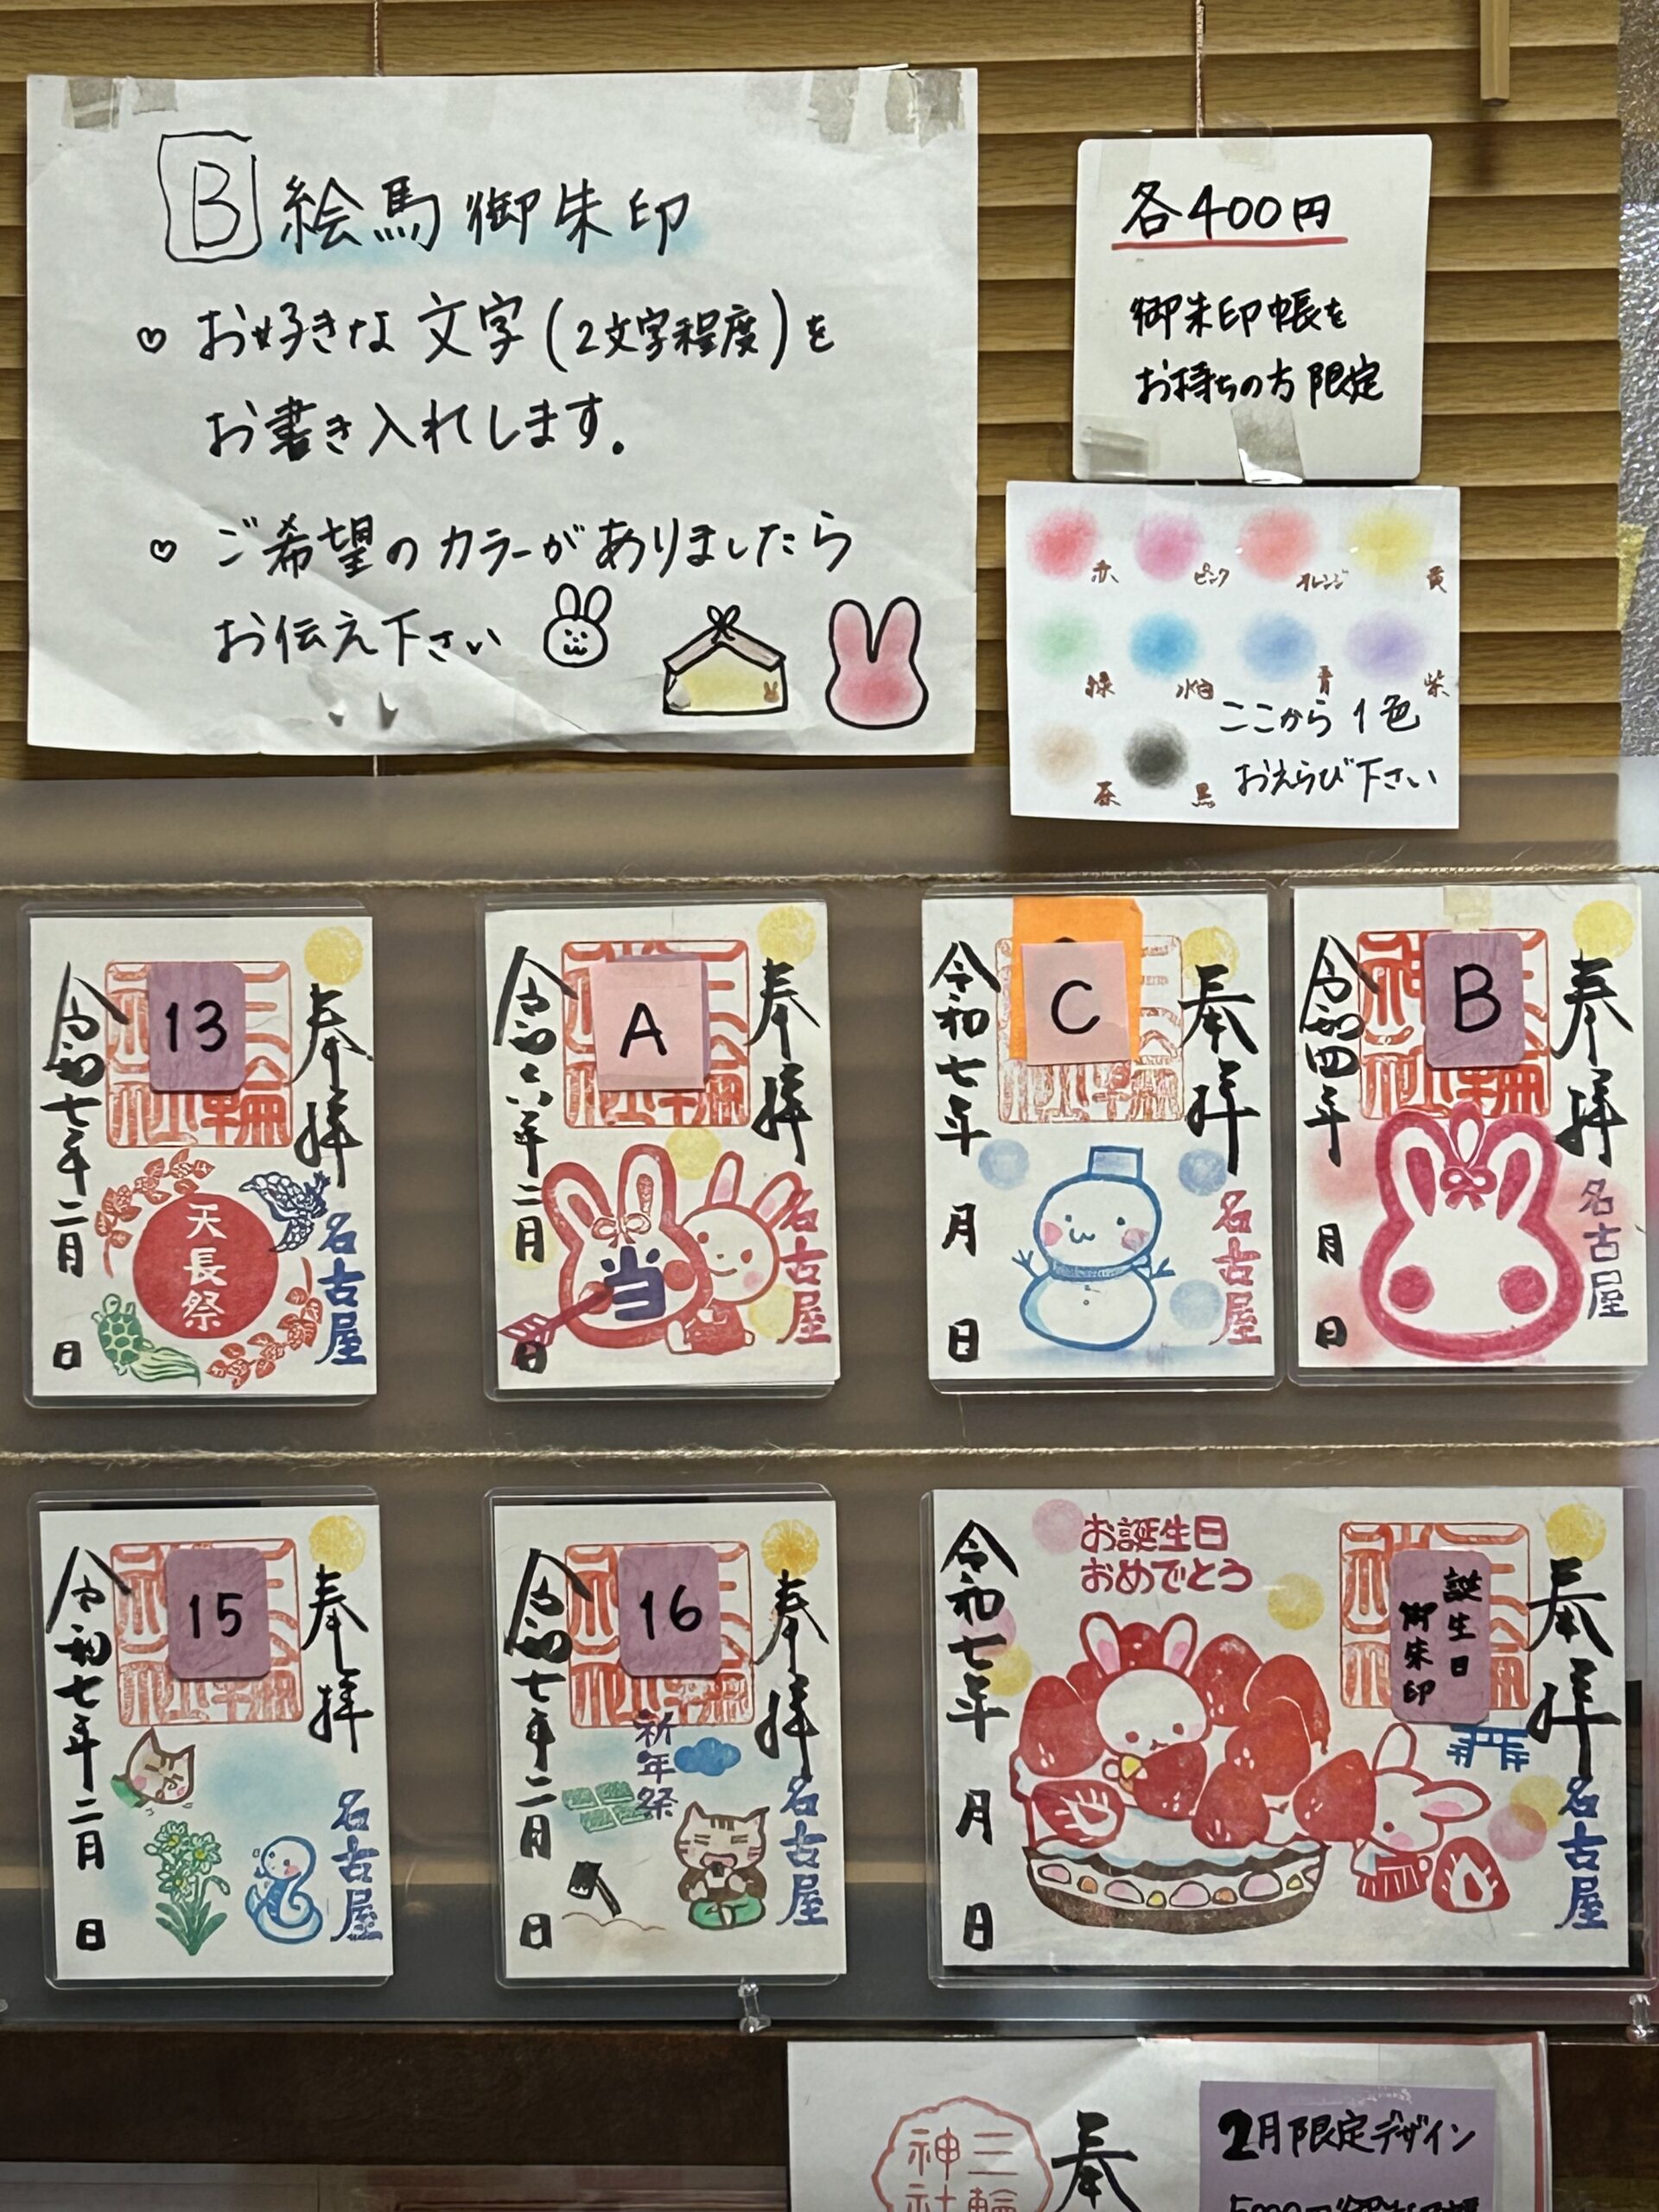 B 絵馬御朱印
♡ お好きな文字(2文字程度)を
お書き入れします。
♡ ご希望のカラーがありましたら
お伝え下さい
各400円
御朱印帳を
お持ちの方限定
赤 ピンク オレンジ 黄
緑 水色 青 紫
茶 黒
ここから1色
おえらび下さい
13
奉拝
名古屋
天長祭
令和七年二月 日
A
奉拝
名古屋
当
令和六年二月 日
C
奉拝
名古屋
令和七年 月 日
B
奉拝
名古屋
令和四年 月 日
15
奉拝
名古屋
令和七年二月 日
16
奉拝
名古屋
祈年祭
令和七年二月 日
お誕生日
おめでとう
誕生日
御朱印
奉拝
名古屋
令和七年 月 日
三輪
神社
奉
2月限定デザイン